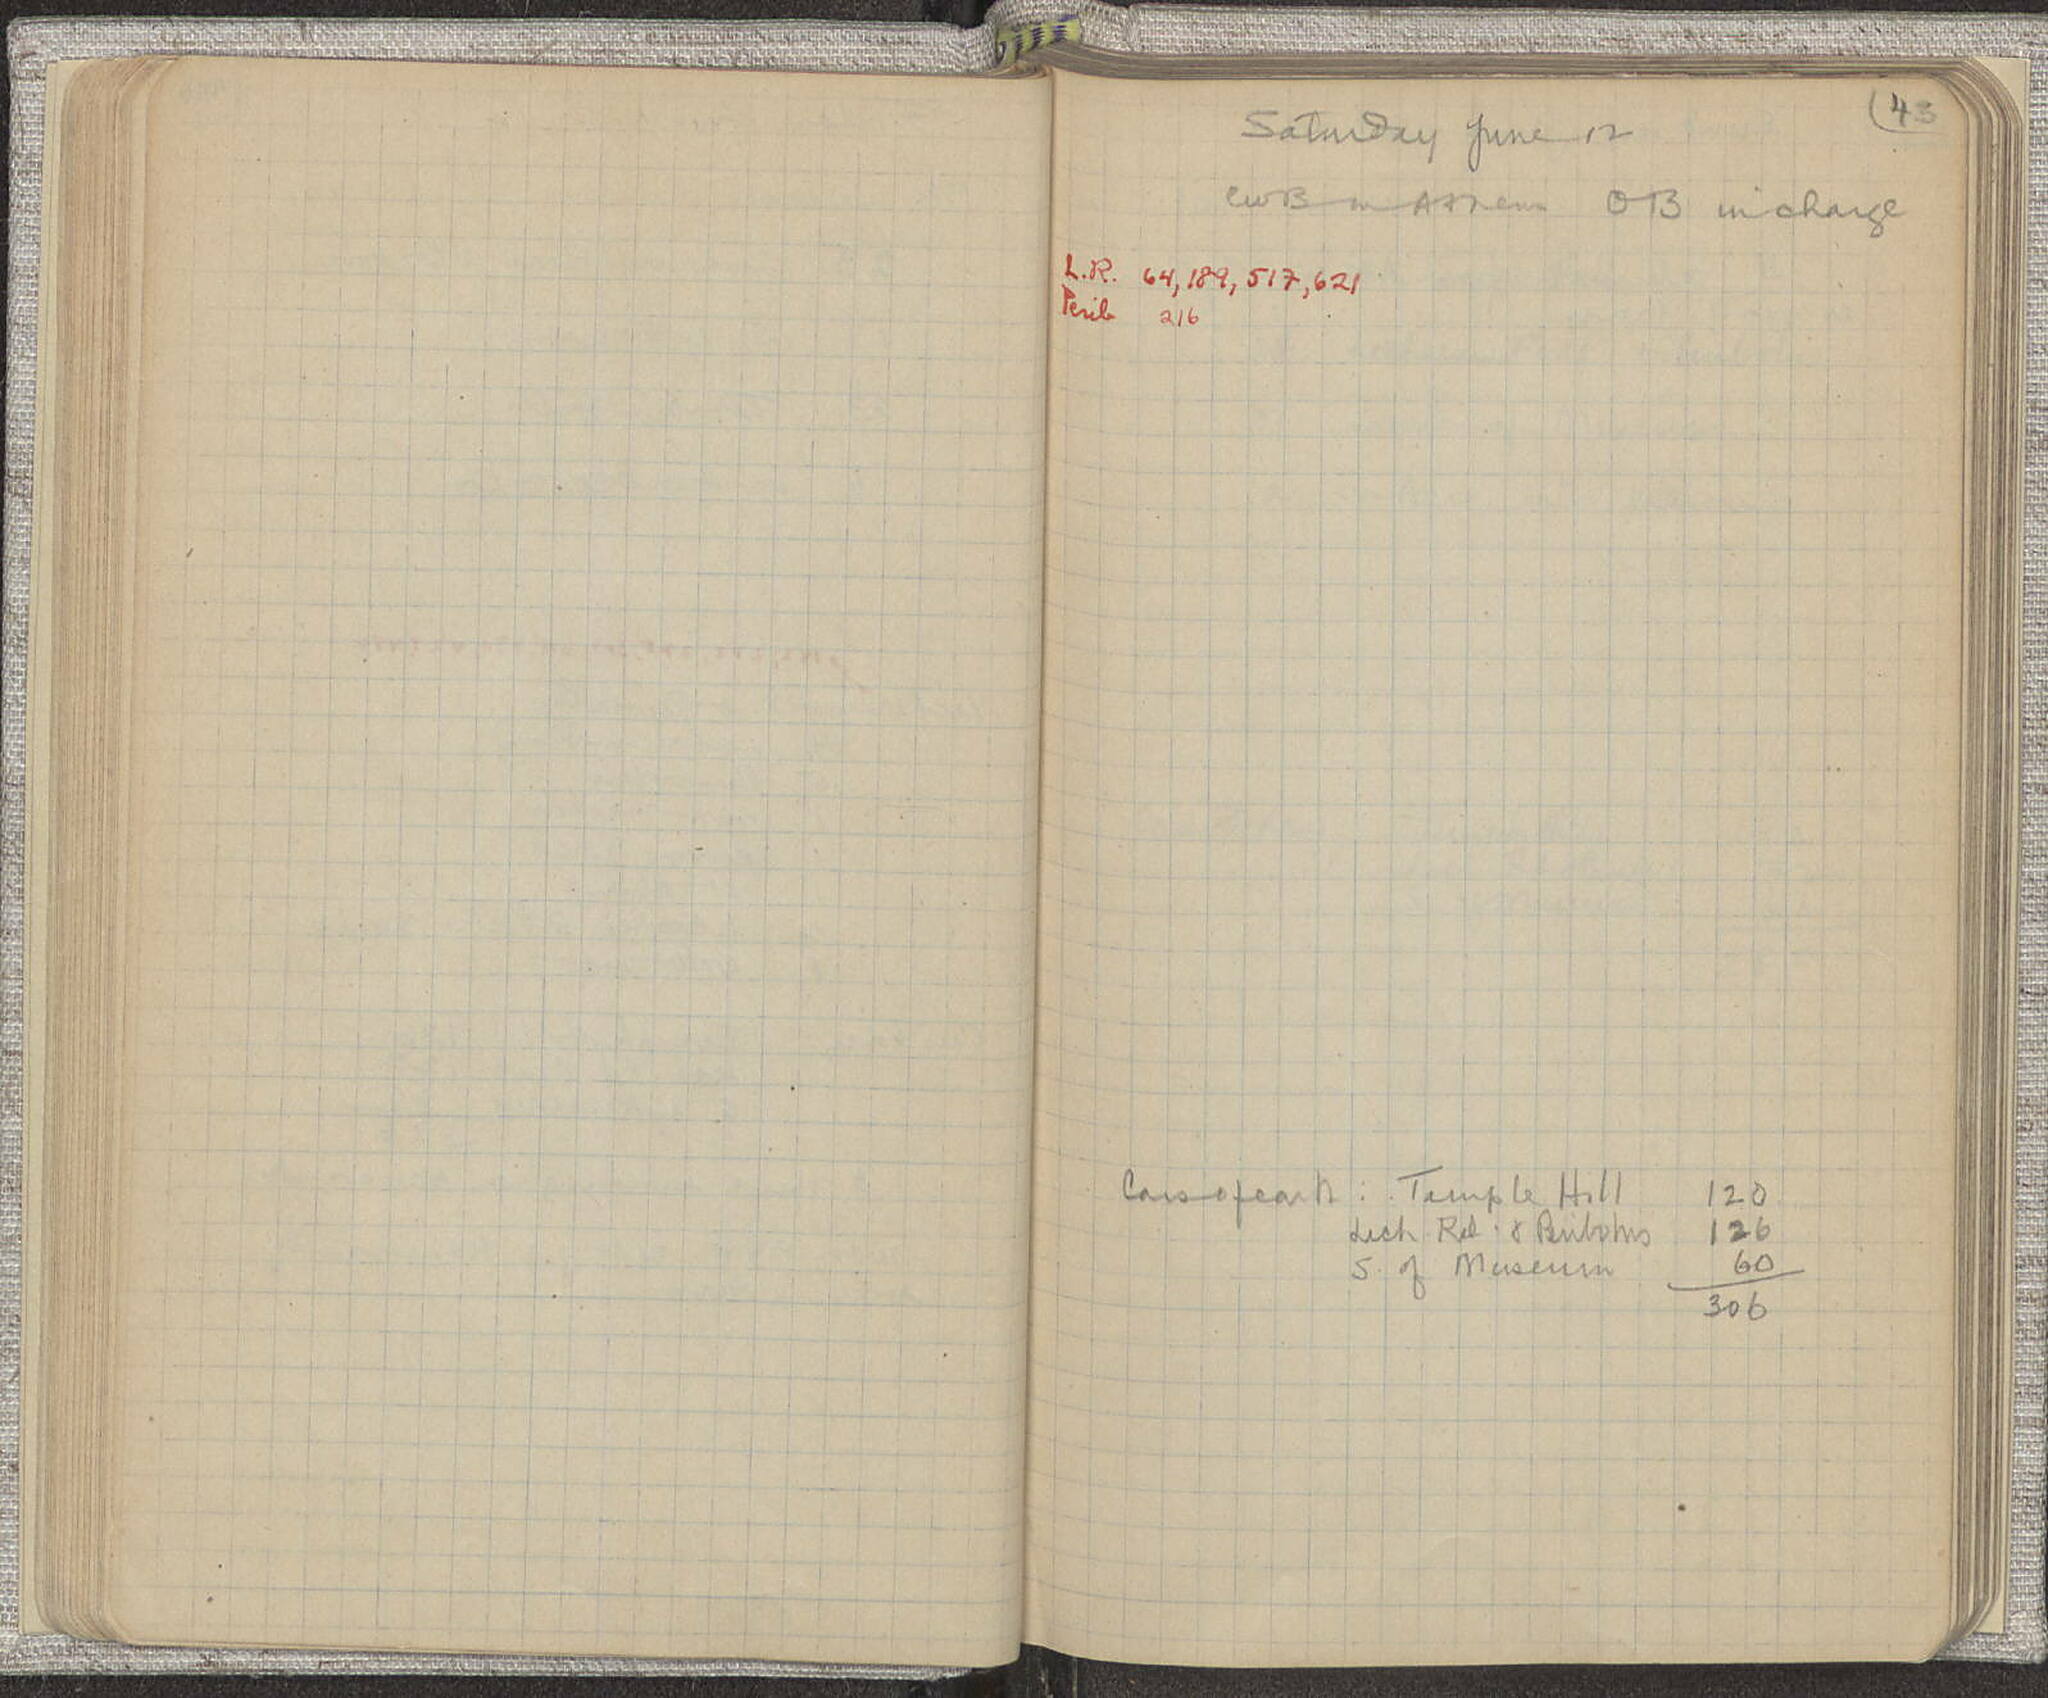 43
Saturday June 12
CWB in Athens OB in charge
L.R. 64, 189, 517, 621
Perib 216
Cars of earth : Temple Hill 120
Lech Rd & Peribolus 126
S. of Museum 60
306